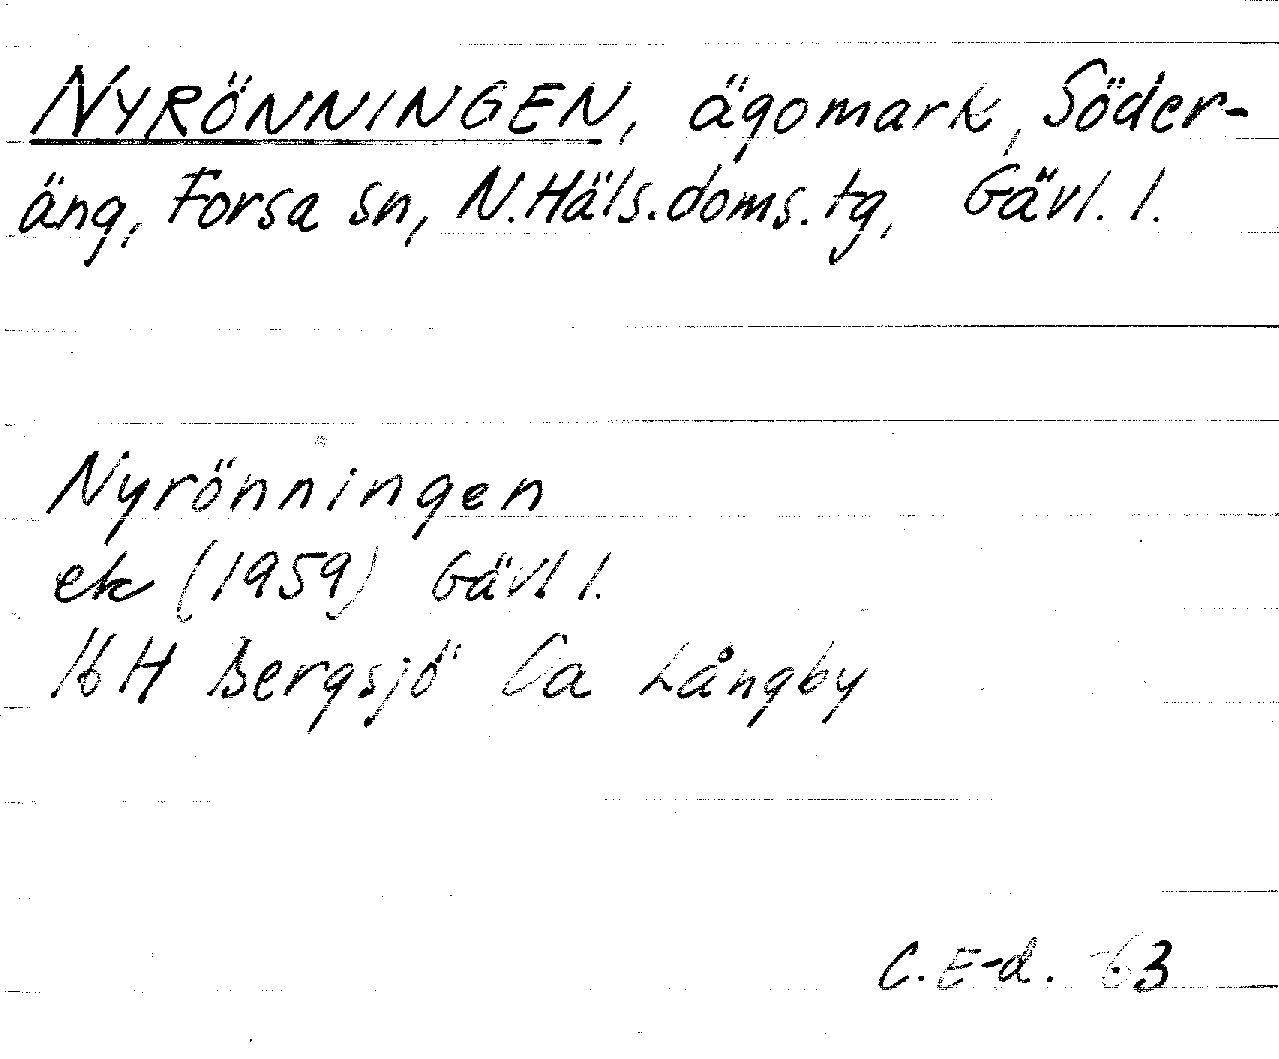 NYRÖNNINGEN, ägomark, Söder-
äng, Forsa sn, N.Häls.doms.tg, Gävl. l.
Nyrönningen
ek (1959) Gävl l.
16 H Bergsjö Ca Långby
C. E-d. -63